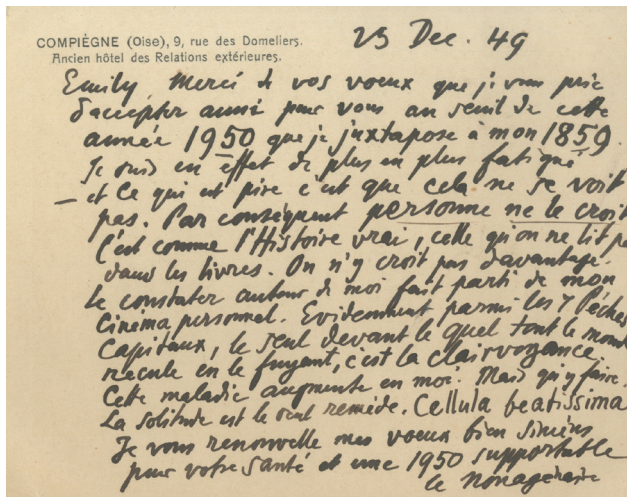 COMPIÈGNE (Oise), 9, rue des Domeliers.
Ancien hôtel des Relations extérieures.
23 Dec. 49
Emily, Merci de vos voeux que je vous prie
d'accepter aussi pour vous au seuil de cette
année 1950 que je juxtapose à mon 1859.
Je suis en effet de plus en plus fatigué
— et ce qui est pire c'est que cela ne se voit
pas. Par conséquent personne ne le croit
C'est comme l'Histoire vrai, celle qu'on ne lit pa
dans les livres. On n'y croit pas davantage.
Le constater autour de moi fait parti de mon
Cinéma personnel. Evidemment parmi les 7 Péchés
Capitaux, le seul devant le quel tout le monde
recule en le fuyant, c'est la Clairvoyance.
Cette maladie augmente en moi. Mais qu'y faire.
La solitude est le seul remède. Cellula beatissima
Je vous renouvelle mes voeux bien sincères
pour votre santé et une 1950 supportable
le nonagénaire